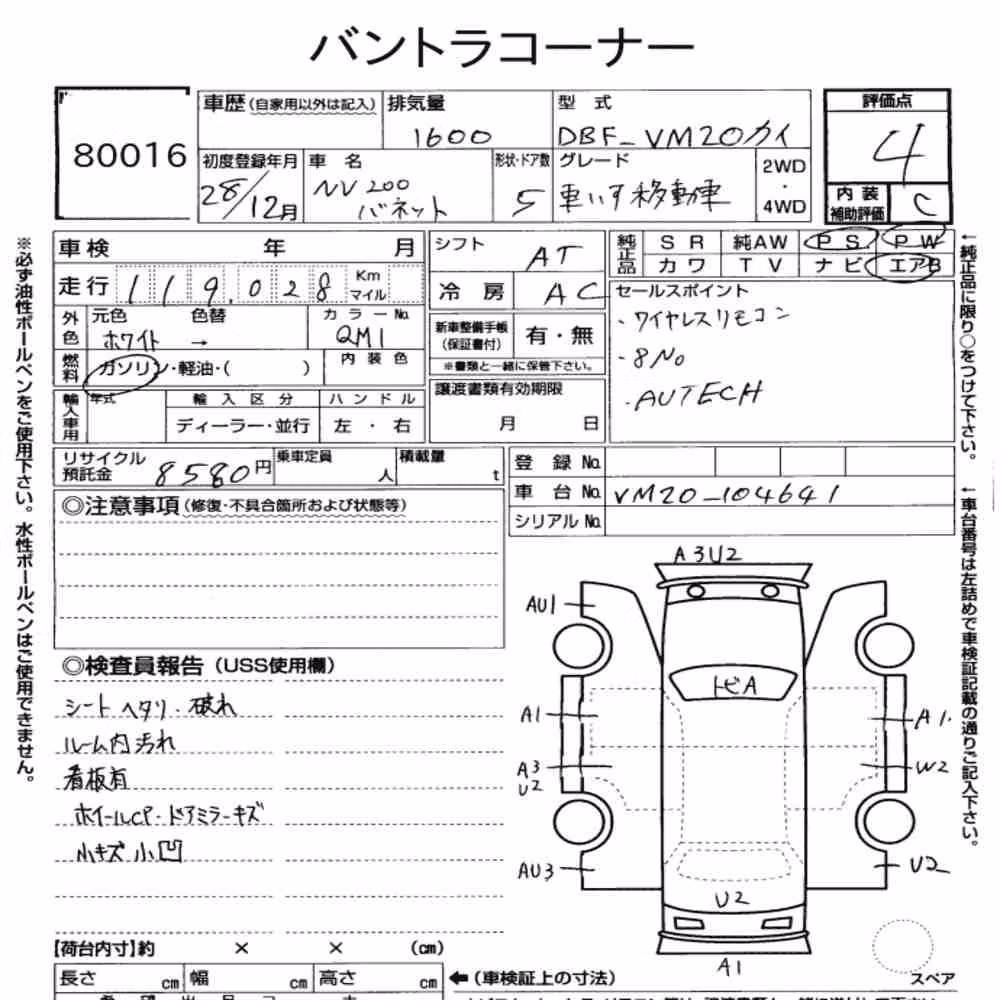 バントラコーナー
80016
車歴(自家用以外は記入)
排気量
1600
型式
DBF-VM20カイ
評価点
4
内装
補助評価
C
初度登録年月
28/12月
車名
NV200
バネット
形状・ドア数
5
グレード
車いす移動車
2WD
・
4WD
車検 年 月
走行 119,028 Km マイル
外色
元色 色替
ホワイト →
カラーNo.
QM1
燃料
ガソリン・軽油・( )
内装色
輸入車用
年式
輸入区分
ディーラー・並行
ハンドル
左・右
シフト AT
冷房 AC
新車整備手帳
(保証書付)
有・無
※書類と一緒に保管下さい。
譲渡書類有効期限
月 日
純正品
SR 純AW PS PW
カワ TV ナビ エアB
セールスポイント
・ワイヤレスリモコン
・8No
・AUTECH
リサイクル
預託金
8580円
乗車定員
人
積載量
t
登録No.
車台No. VM20-104641
シリアルNo.
◎注意事項(修復・不具合箇所および状態等)
◎検査員報告(USS使用欄)
シートヘタリ・破れ
ルーム内汚れ
看板有
ホイールCP・ドアミラーキズ
小キズ小凹
A3U2
AU1
トビA
A1
A1.
A3
U2
W2
AU3
U2
U2
A1
スペア
【荷台内寸】約 × × (cm)
長さ cm 幅 cm 高さ cm
←(車検証上の寸法)
※必ず油性ボールペンをご使用下さい。水性ボールペンはご使用できません。
←純正品に限り○をつけて下さい。
←車台番号は左詰めで車検証記載の通りご記入下さい。